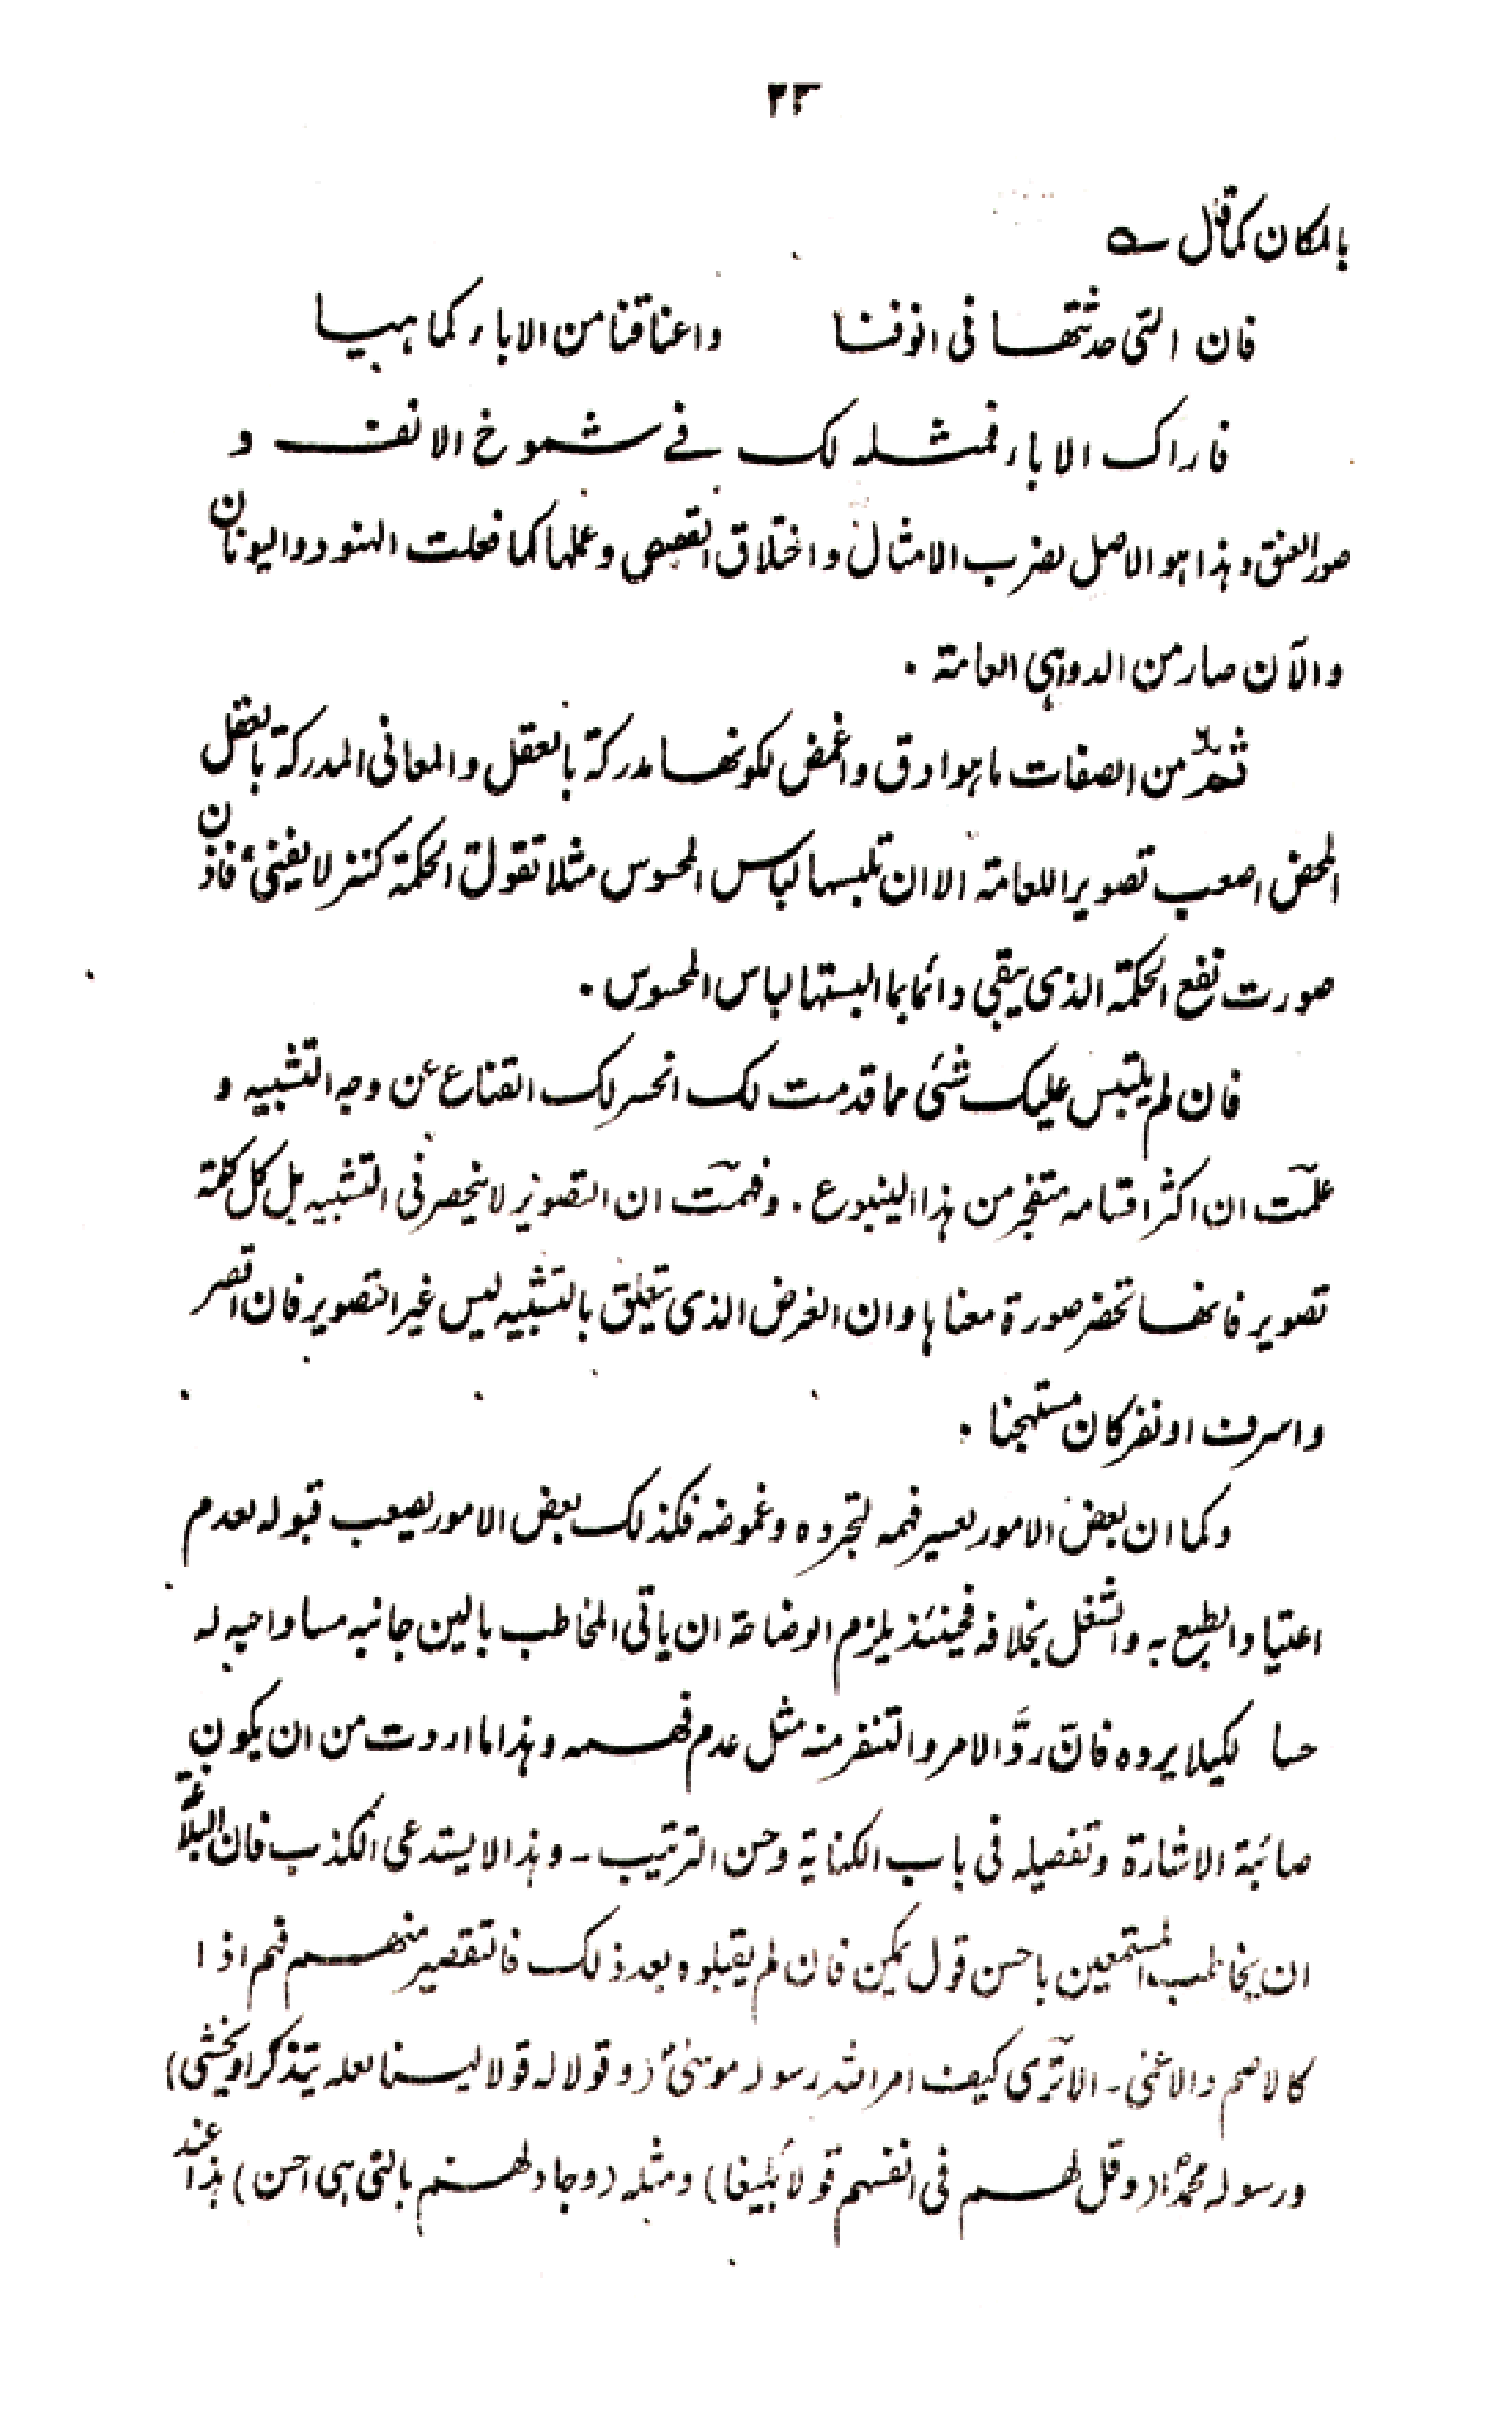 ٢٣
بالمكان كما قال ؎
فان التى حدثتها فى انوفنا واعناقنا من الاباء كما هيا
فاراك الاباء فمثله لك فے شموخ الانف و
صور العنق و هذا هو الاصل لضرب الامثال و اختلاق القصص و عملها كما فعلت الهنود و اليونان
و الآن صار من الدواهي العامة ۰
ثم من الصفات ما هو ادق و اغمض لكونها مدركة بالعقل و المعانى المدركة بالعقل
المحض اصعب تصويرا للعامة الا ان تلبسها لباس المحسوس مثلا تقول الحكمة كنز لا يفنى فاذن
صورت نفع الحكمة الذى يبقى دائما بما البستها لباس المحسوس ۰
فان لم يلتبس عليك شئ مما قدمت لك انحسر لك القناع عن وجه التشبيه و
علمت ان اكثر اقسامه متفجر من هذا الينبوع . و فهمت ان التصوير لا ينحصر فى التشبيه بل كل كلمة
تصوير فانها تحضر صورة معناها و ان الغرض الذى يتعلق بالتشبيه ليس غير التصوير فان اقصر
و اسرف او نفر كان مستهجنا ۰
و كما ان بعض الامور يعسر فهمه لتجرده و غموضه فكذلك بعض الامور يصعب قبوله لعدم
اعتياد الطبع به و الشغل بخلافه فحينئذ يلزم الوضاعة ان ياتى المخاطب بالين جانبه مساواجبه له
حسا لكيلا يرده فانّ ردّ الامر و التنفر منه مثل عدم فهمه و هذا ما اردت من ان يكون
صائبة الاشارة و تفصيله فى باب الكناية و حسن الترتيب ـ و هذا لا يستدعى الكذب فان البلاغة
ان يخاطب المستمعين باحسن قول يمكن فان لم يقبلوه بعد ذلك فالتقصير منهم فهم اذا
كالاصم و الاعمى ـ الا ترى كيف امر الله رسوله موسىٰؑ (و قولا له قولا لينا لعله يتذكر او يخشى)
و رسوله محمدؐا (و قل لهم فى انفسهم قولا بليغا) و مثله (و جادلهم بالتى هى احسن) هذا عند